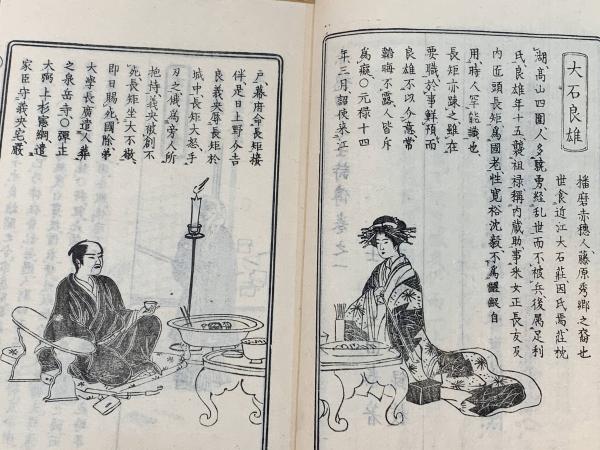 大石良雄
播磨赤穗人藤原秀鄉之裔也
世食近江大石莊因氏焉莊枕
湖高山四圍人多驍勇經乱世而不被兵後属足利
氏良雄年十五襲祖祿稱内藏助事釆女正長友及
内匠頭長矩為國老性寬裕沈毅不為齷齪自
用時人罕能識也
長矩亦踈之雖在
要職於事鮮預而
良雄不以介意常
韜晦不露人皆斥
為癡〇元祿十四
年三月詔使来江
戸幕府命長矩接
伴是日上野介吉
良義央辱長矩於
城中長矩大怒手
刃之俄為旁人所
抱持義央被創不
死長矩坐大不敬
即日賜死國除弟
大學長廣遣人葬
之泉岳寺〇彈正
大弼上杉憲綱遣
家臣守義央宅嚴